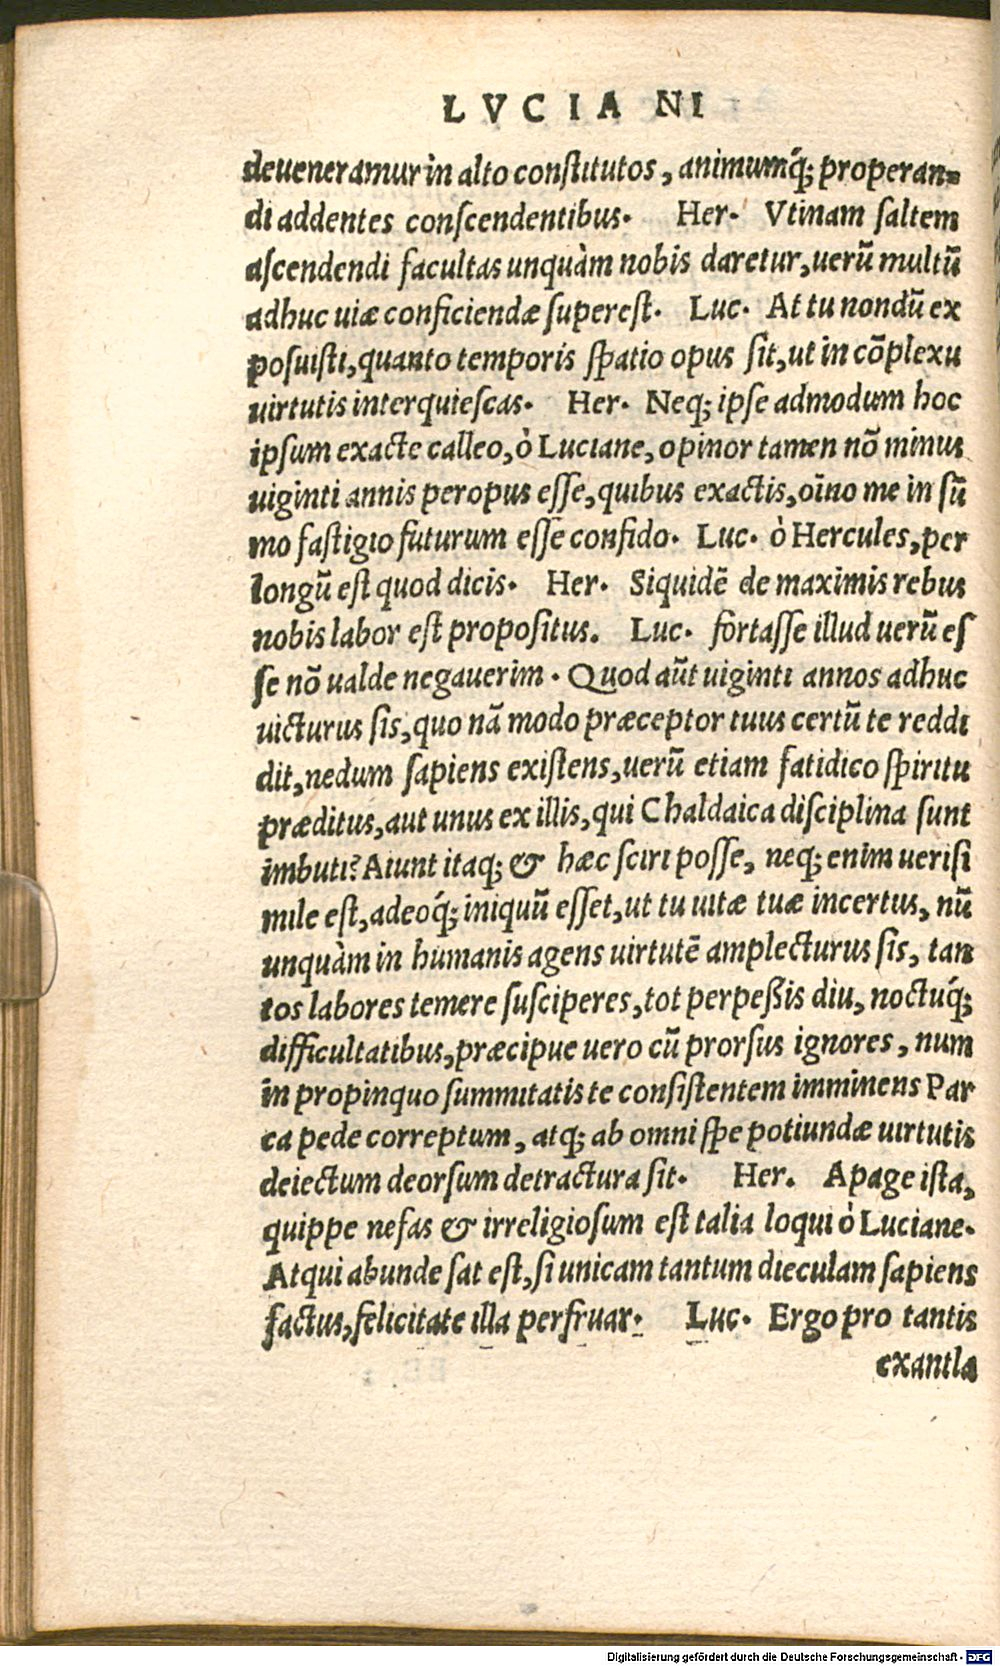 LVCIANI
deueneramur in alto constitutos, animumq́; properan-
di addentes conscendentibus. Her. Vtinam saltem
ascendendi facultas unquàm nobis daretur, uerũ multũ
adhuc uiæ conficiendæ superest. Luc. At tu nondũ ex
posuisti, quanto temporis spatio opus sit, ut in cõplexu
uirtutis interquiescas. Her. Neq; ipse admodum hoc
ipsum exacte calleo, ò Luciane, opinor tamen nõ minus
uiginti annis peropus esse, quibus exactis, oĩno me in sũ
mo fastigio futurum esse confido. Luc. ò Hercules, per
longũ est quod dicis. Her. Siquidẽ de maximis rebus
nobis labor est propositus. Luc. fortasse illud uerũ es
se nõ ualde negauerim. Quod aũt uiginti annos adhuc
uicturus sis, quo nã modo præceptor tuus certũ te reddi
dit, nedum sapiens existens, uerũ etiam fatidico spiritu
præditus, aut unus ex illis, qui Chaldaica disciplina sunt
imbuti? Aiunt itaq; & hæc sciri posse, neq; enim uerisi
mile est, adeoq́; iniquũ esset, ut tu uitæ tuæ incertus, nũ
unquàm in humanis agens uirtutẽ amplecturus sis, tan
tos labores temere susciperes, tot perpeßis diu, noctuq́;
difficultatibus, præcipue uero cũ prorsus ignores, num
in propinquo summitatis te consistentem imminens Par
ca pede correptum, atq; ab omni spe potiundæ uirtutis
deiectum deorsum detractura sit. Her. Apage ista,
quippe nefas & irreligiosum est talia loqui ò Luciane.
Atqui abunde sat est, si unicam tantum dieculam sapiens
factus, felicitate illa perfruar. Luc. Ergo pro tantis
exantla
Digitalisierung gefördert durch die Deutsche Forschungsgemeinschaft - DFG